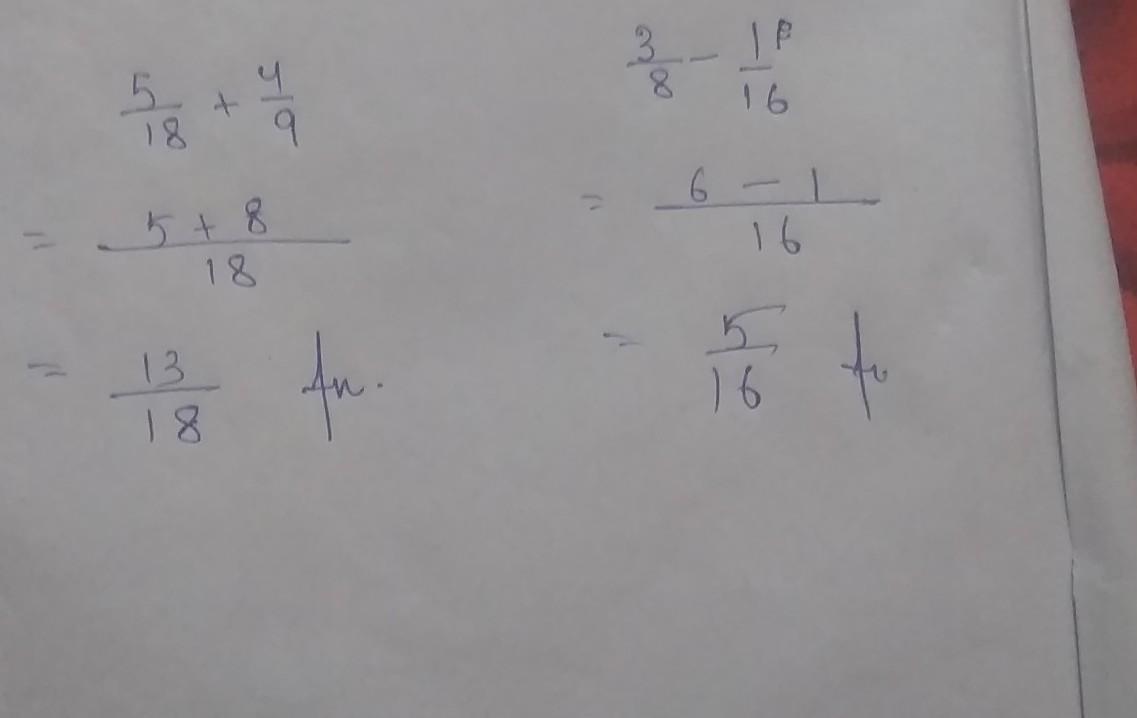 5/18 + 4/9
= 5 + 8 / 18
= 13/18
3/8 - 1/16
= 6 - 1 / 16
= 5/16